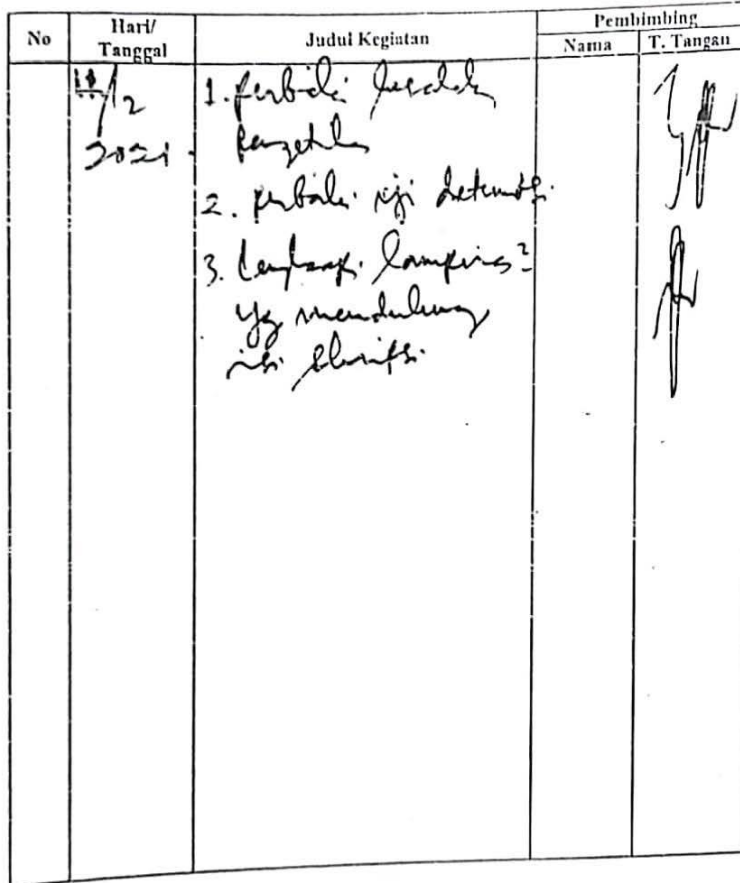 No Hari/ Tanggal Judul Kegiatan Pembimbing
Nama T. Tangan
/2
2021
1. Perbaiki kesalahan
pengetikan
2. perbaiki uji determinasi
3. Lengkapi lampiran2
yg mendukung
isi skripsi